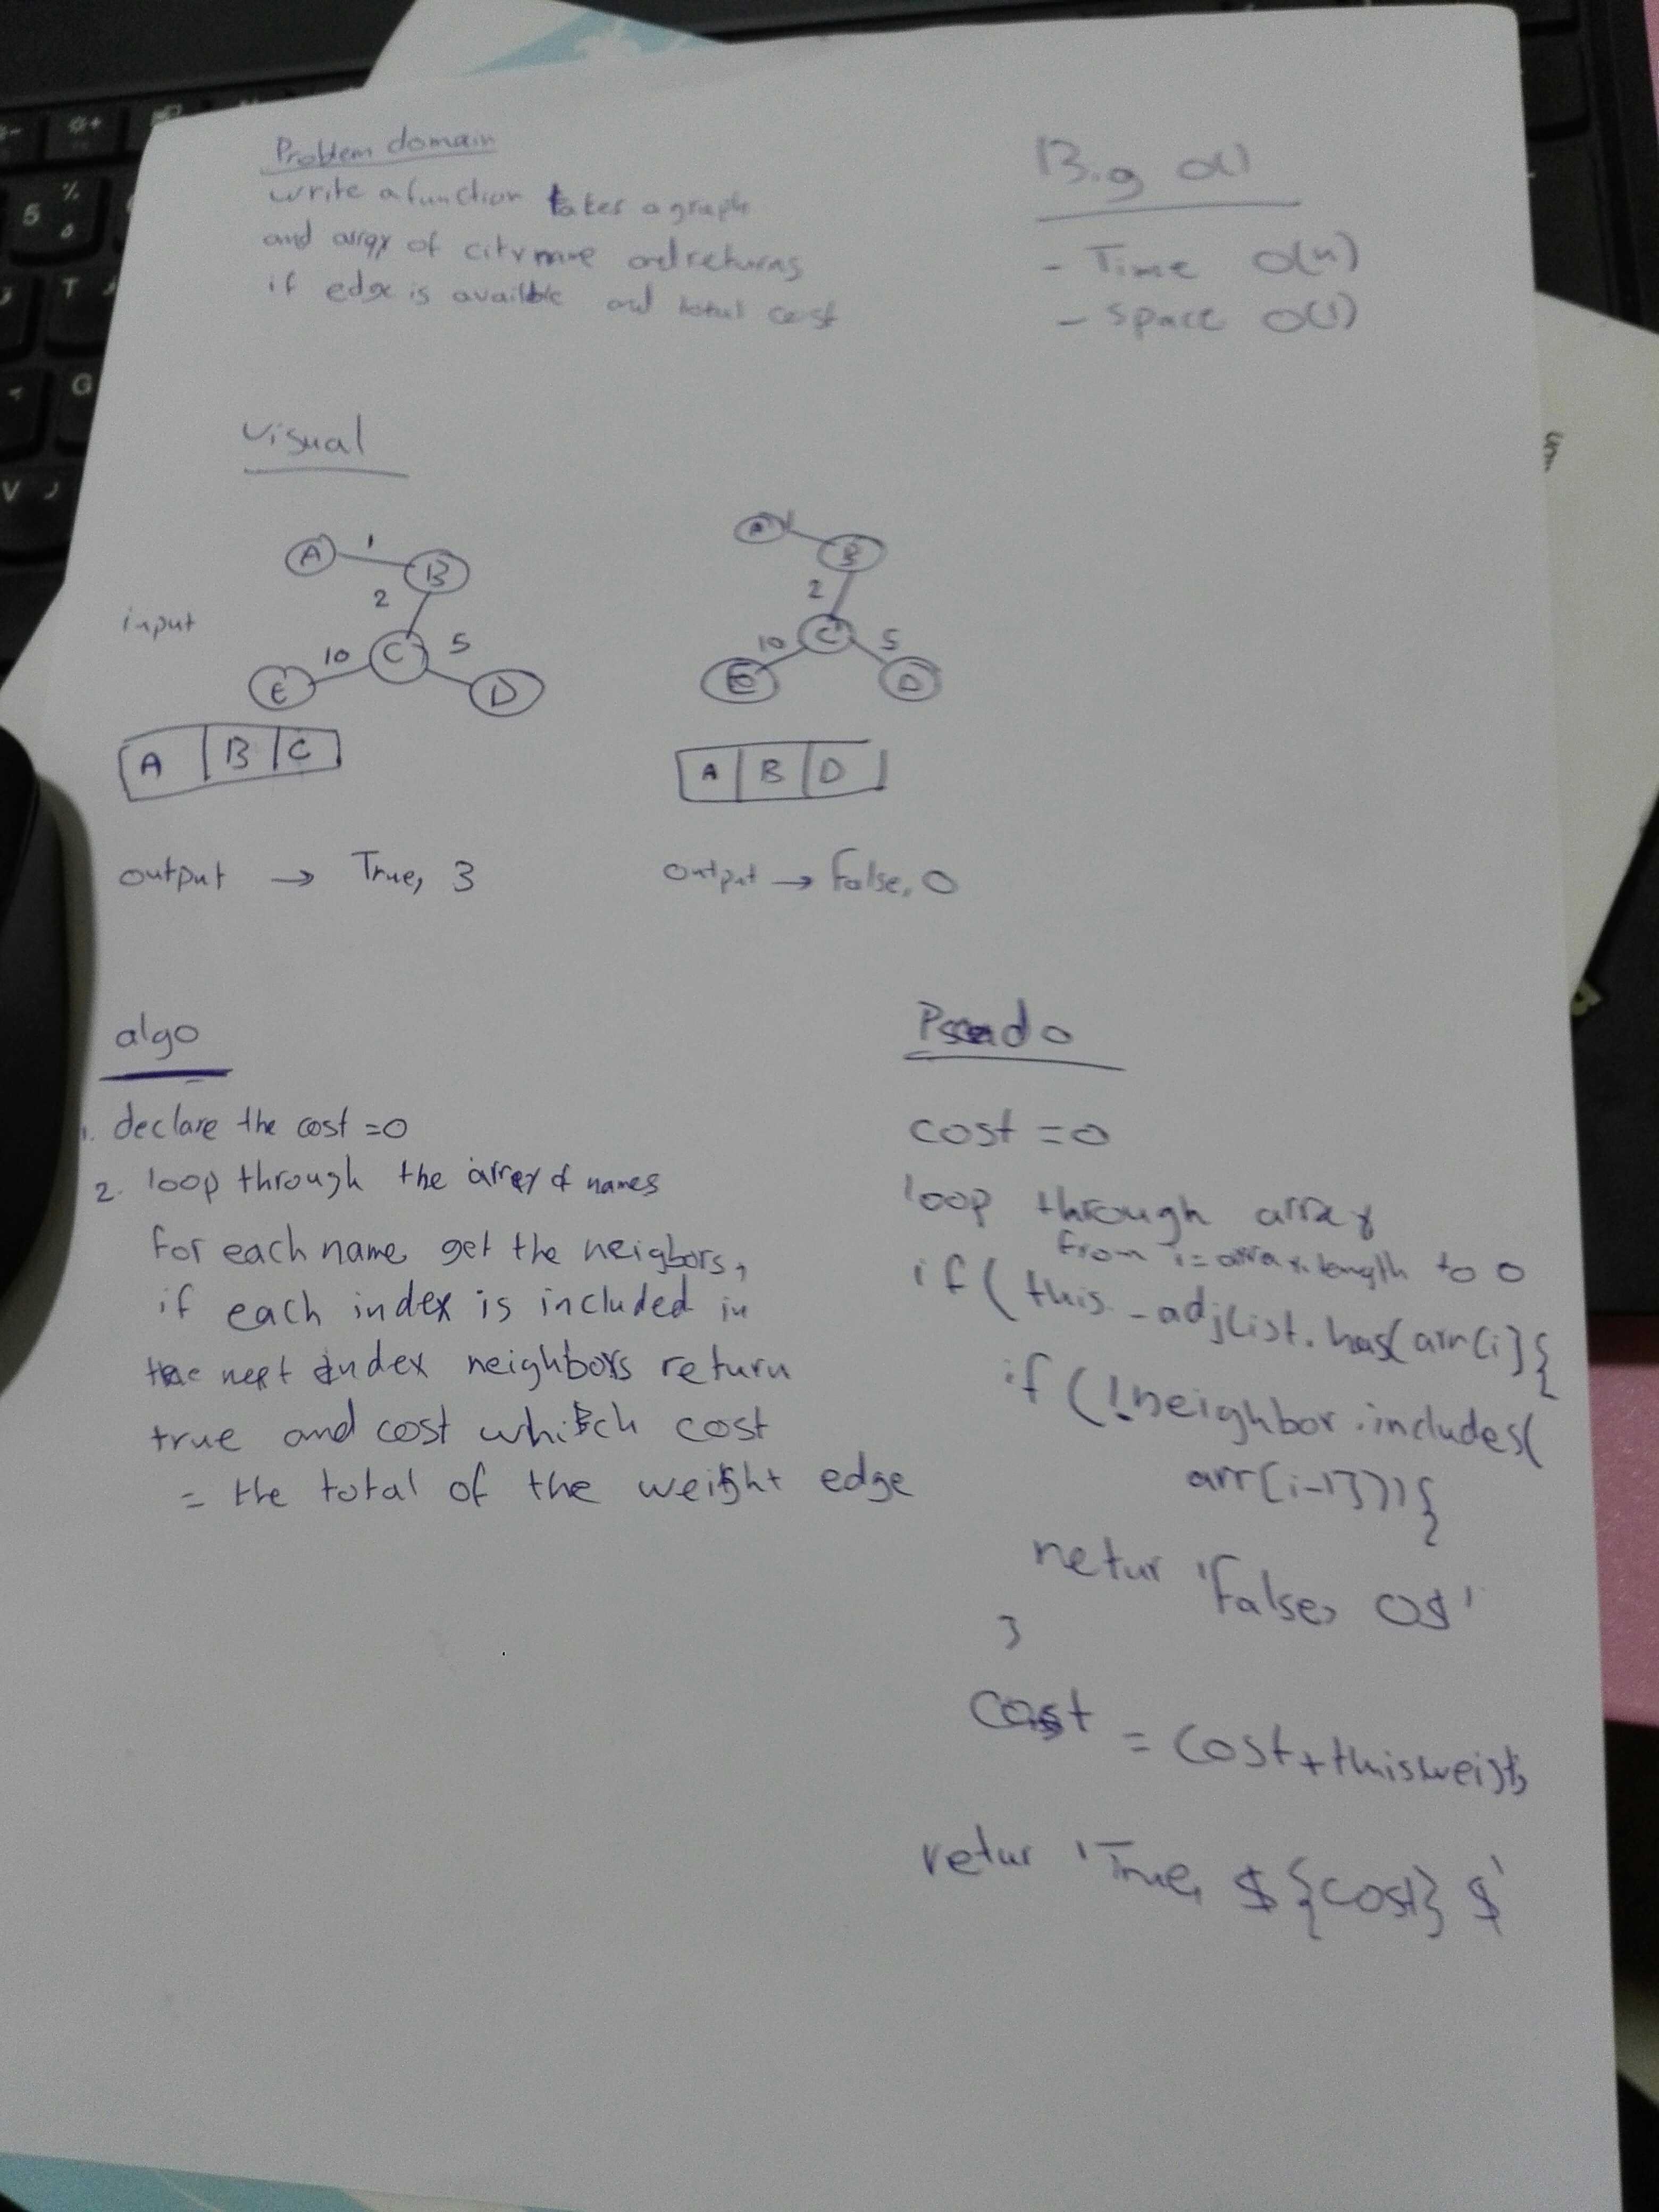 Problem domain
write a function takes a graph
and array of city name and returns
if edge is availble and total cost
Big O()
- Time O(n)
- space O(1)
visual
input
A 1 B
2
10 C 5
E D
A B C
output → True, 3
A 1 B
2
10 C 5
E D
A B D
output → False, 0
algo
1. declare the cost =0
2. loop through the array of names
for each name get the neigbors,
if each index is included in
the next index neighbors return
true and cost which cost
= the total of the weight edge
Pseudo
cost =0
loop through array
from i= array.length to 0
if ( this._adjlist.has(arr[i]{
if (!neighbor.includes(
arr[i-1])){
retur 'False, 0$'
}
cost = cost+this
retur 'True, ${cost} $'
5
%
T
G
V